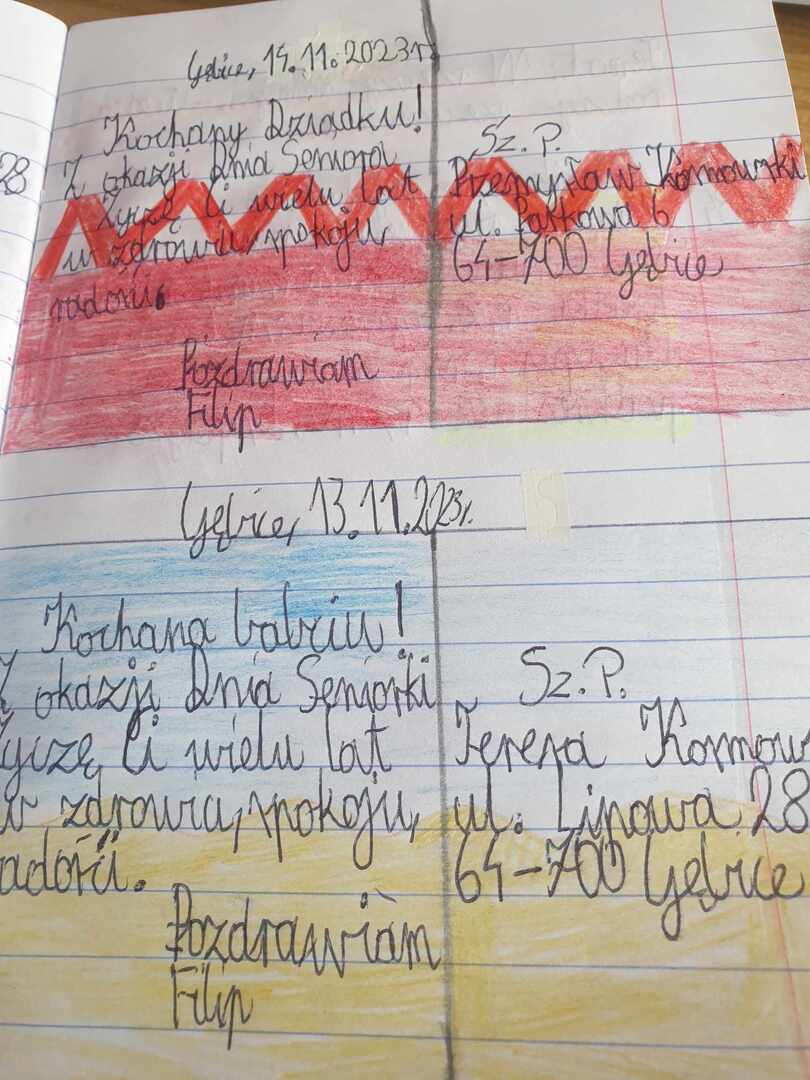 Gębice, 14.11.2023r.
Kochany Dziadku!
Z okazji Dnia Seniora
życzę Ci wielu lat
w zdrowiu, spokoju,
radości.
Pozdrawiam
Filip
Sz. P.
Przemysław
ul. Parkowa 6
64-700 Gębice
28
Gębice, 13.11.2023r.
Kochana babciu!
Z okazji Dnia Seniorki
życzę Ci wielu lat
w zdrowiu, spokoju,
adości.
Pozdrawiam
Filip
Sz. P.
Teresa
ul. Lipowa 28
64-700 Gębice